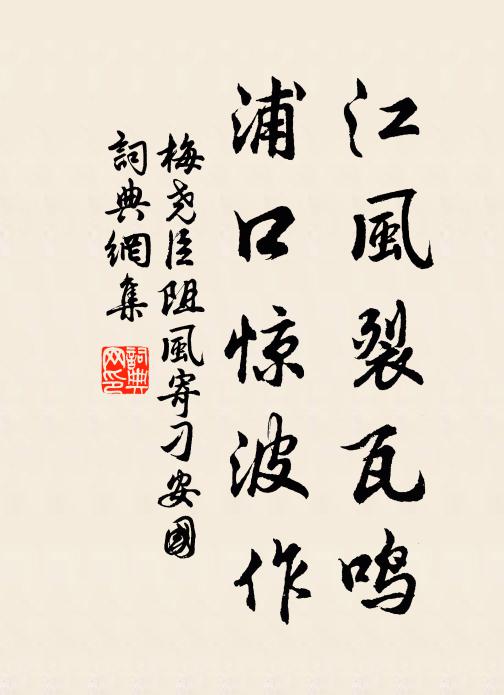 江風裂瓦鸣
浦口惊波作
梅尧臣阻風寄刁安國
詞典網集
詞典网印